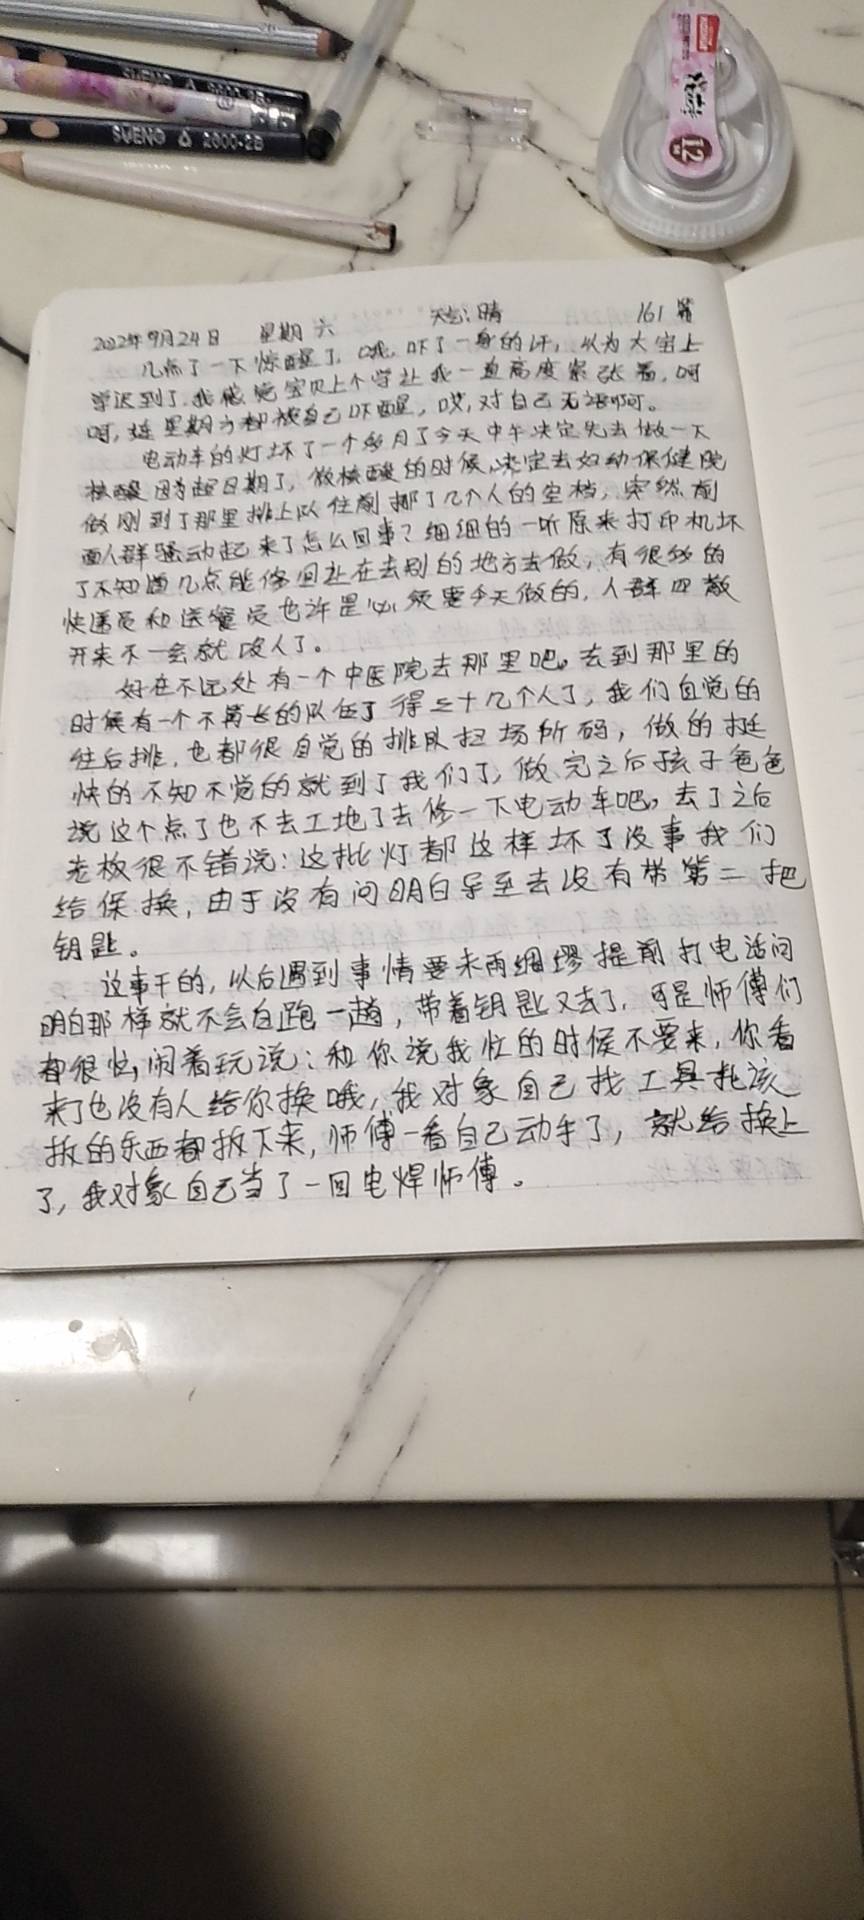 SWENO 2000-2B
SWENO 2000-2B
12
2022年9月24日 星期六 天气:晴 161篇
几点了一下惊醒了,哦,吓了一身的汗,以为大宝上
学迟到了,我感觉宝贝上个学让我一直高度紧张着,呵
呵,连星期六都被自己吓醒,哎,对自己无语啊。
电动车的灯坏了一个多月了今天中午决定先去做一下
核酸因为超日期了,做核酸的时候,决定去妇幼保健院
做刚到了那里排上队往前挪了几个人的空档,突然前
面人群骚动起来了怎么回事?细细的一听原来打印机坏
了不知道几点能修回让在去别的地方去做,有很多的
快递员和送餐员也许是必须要今天做的,人群四散
开来不一会就没人了。
好在不远处有一个中医院去那里吧。去到那里的
时候有一个不算长的队伍了得三十几个人了,我们自觉的
往后排,也都很自觉的排队扫场所码,做的挺
快的不知不觉的就到了我们了,做完之后孩子爸爸
说这个点了也不去工地了去修一下电动车吧,去了之后
老板很不错说:这批灯都这样坏了没事我们
给保换,由于没有问明白导至去没有带第二把
钥匙。
这事干的,以后遇到事情要未雨绸缪提前打电话问
明白那样就不会白跑一趟,带着钥匙又去了,可是师傅们
都很忙,闹着玩说:和你说我忙的时候不要来,你看
来了也没有人给你换哦,我对象自己找工具把该
拆的东西都拆下来,师傅一看自己动手了,就给换上
了,我对象自己当了一回电焊师傅。